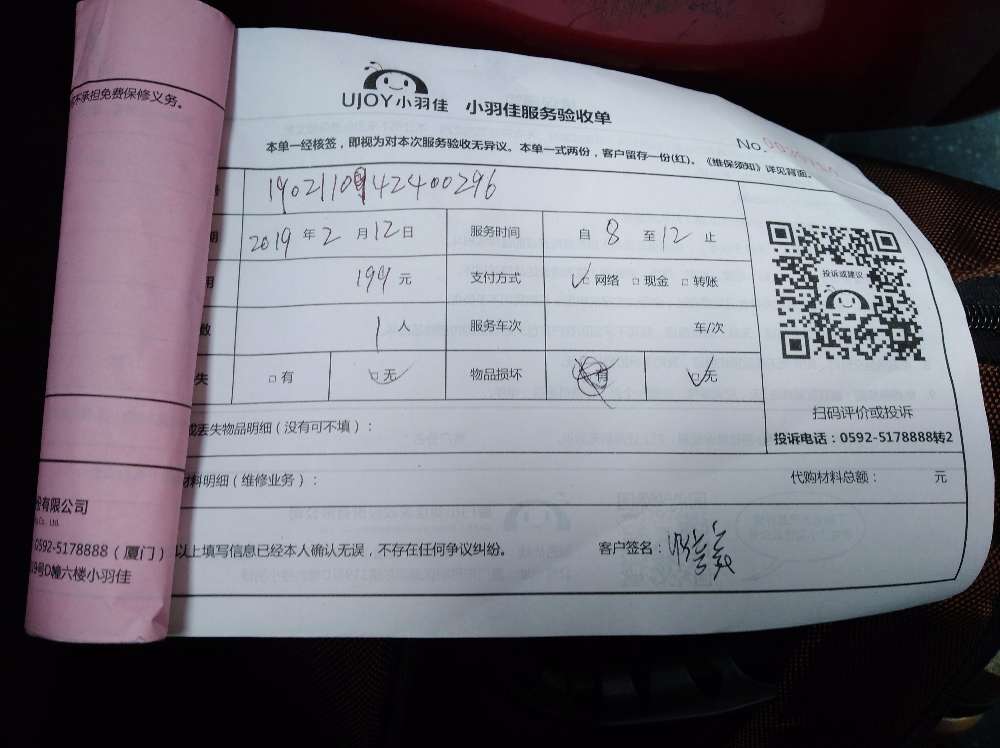 不承担免费保修义务。
UJOY小羽佳 小羽佳服务验收单
No.
本单一经核签，即视为对本次服务验收无异议。本单一式两份，客户留存一份(红)。《维保须知》详见背面。
2019年2月12日 服务时间 自8至12止
199元 支付方式 □网络 □现金 □转账
1人 服务车次 车/次
失 □有 □无 物品损坏 有 □无
投诉或建议
扫码评价或投诉
投诉电话：0592-5178888转2
或丢失物品明细（没有可不填）：
材料明细（维修业务）： 代购材料总额： 元
以上填写信息已经本人确认无误，不存在任何争议纠纷。 客户签名：
有限公司
Co., Ltd.
0592-5178888（厦门）
9号D幢六楼小羽佳